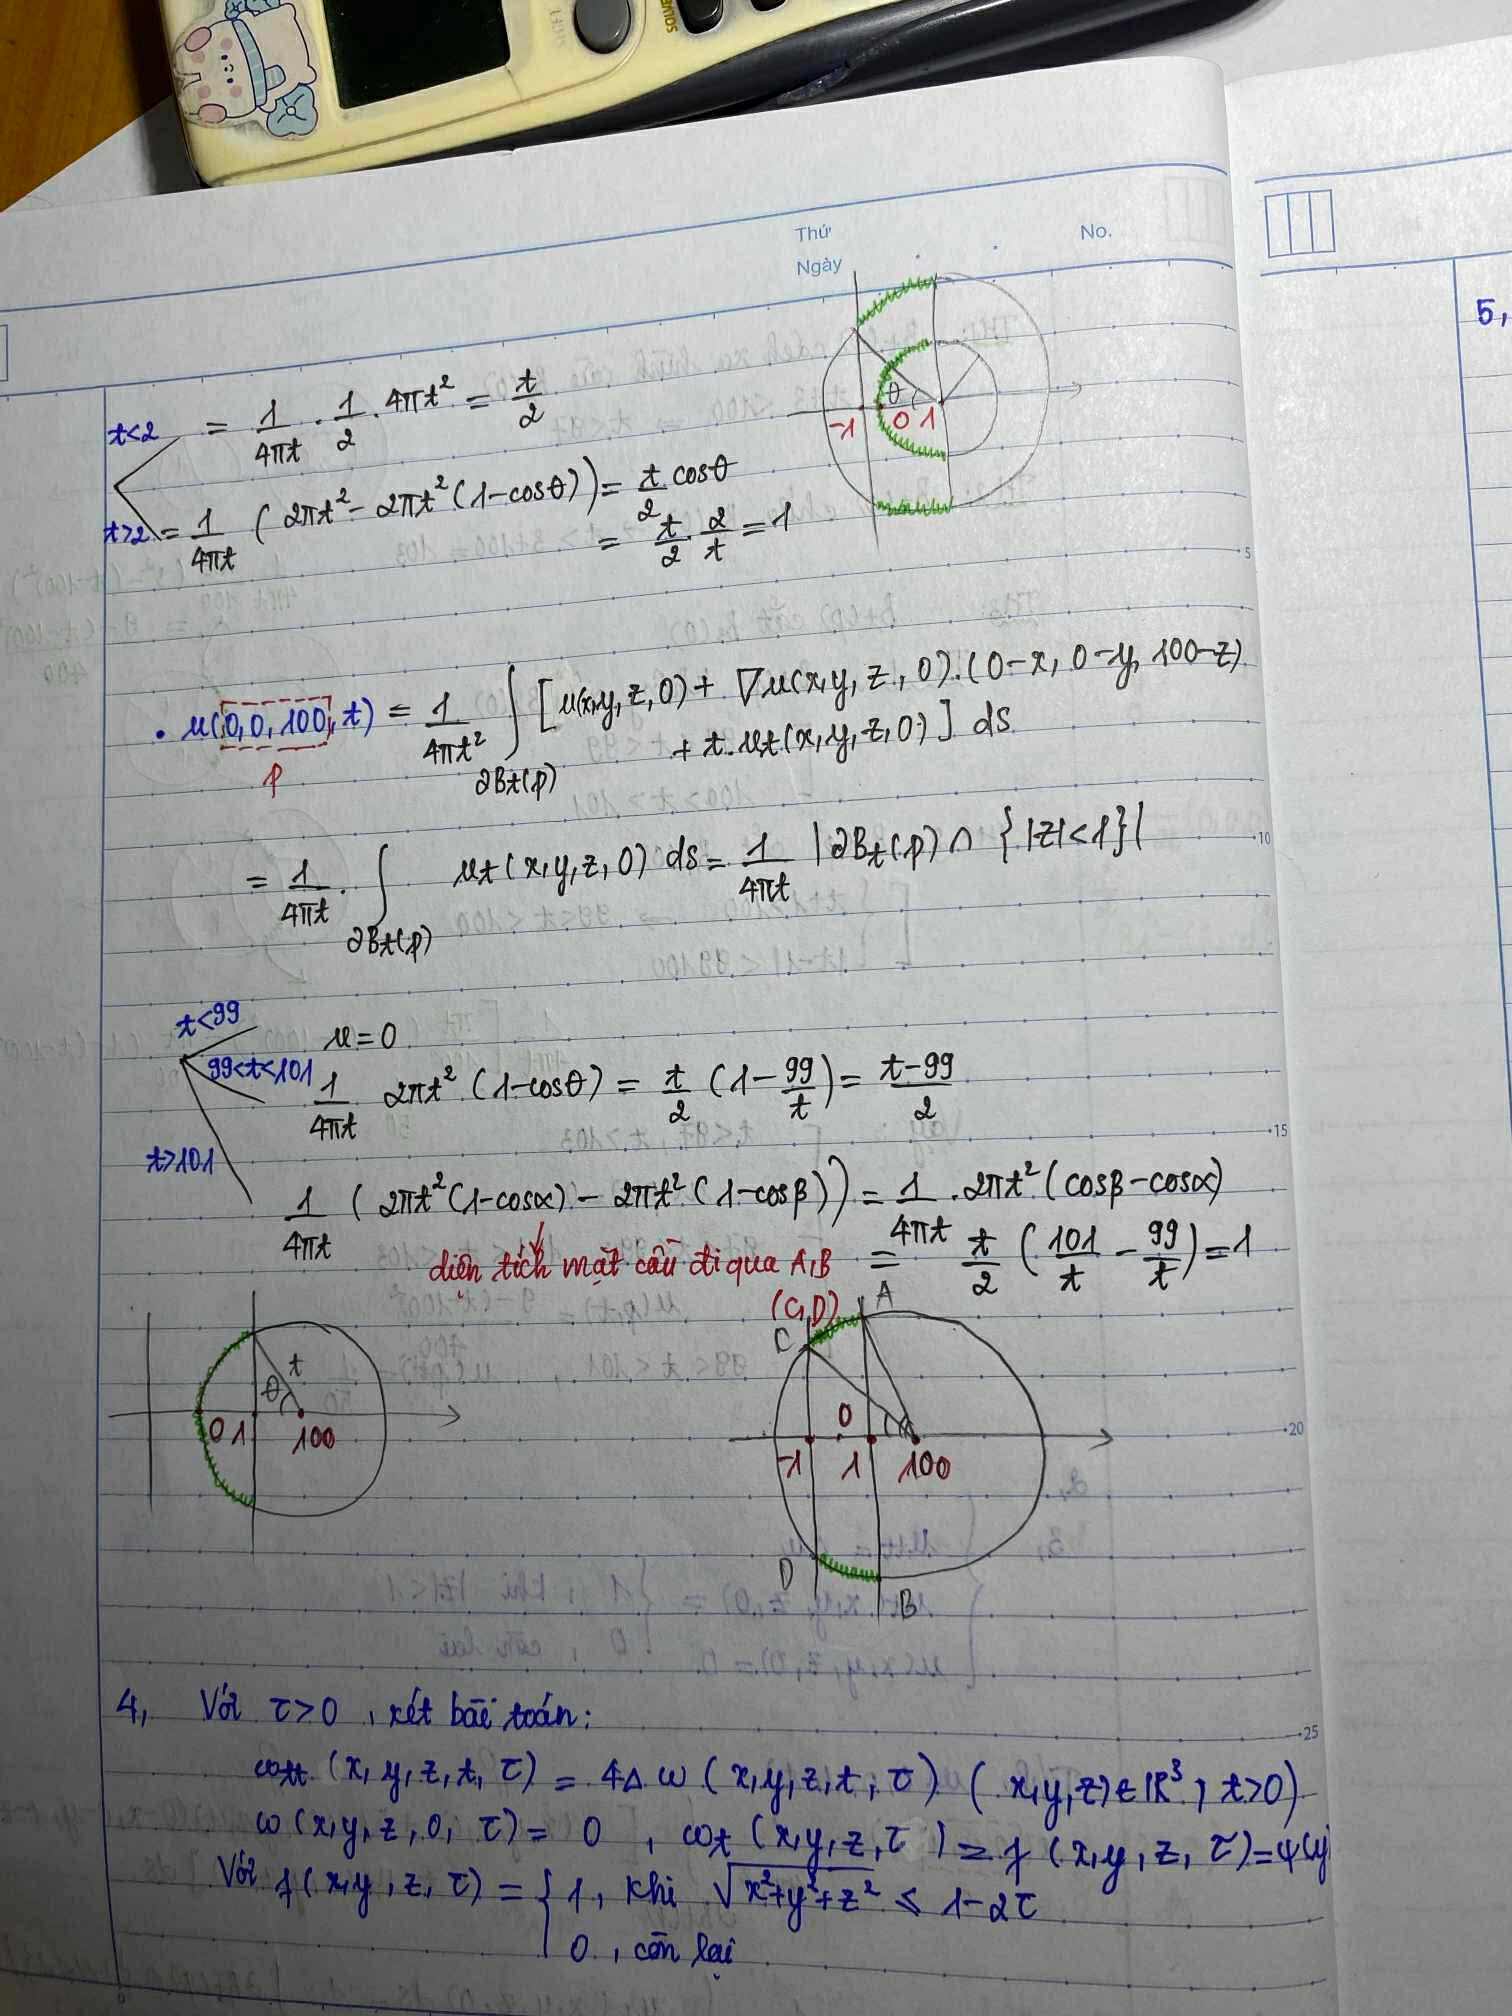 SOLVE
Thứ
Ngày
No.
5,
t<2 = 1/4πt . 1/2 . 4πt² = t/2
t>2 = 1/4πt ( 2πt² - 2πt² (1-cosθ)) = t/2 cosθ
= t/2 . 2/t = 1
θ
-1 0 1
5
• u(0,0,100,t) = 1/4πt² ∫ [u(x,y,z,0) + ∇u(x,y,z,0).(0-x, 0-y, 100-z)
p ∂Bt(p) + t.ut(x,y,z,0)] dS
10
= 1/4πt . ∫ ut(x,y,z,0) ds = 1/4πt |∂Bt(p) ∩ {|z|<1}|
∂Bt(p)
t<99 u=0
99<t<101 1/4πt 2πt² (1-cosθ) = t/2 (1 - 99/t) = t-99/2
15
t>101 1/4πt ( 2πt² (1-cosα) - 2πt² (1-cosβ)) = 1/4πt . 2πt² (cosβ - cosα)
diện tích mặt cầu đi qua A,B = t/2 ( 101/t - 99/t ) = 1
(C,D)
A
C
t
θ
0 1 100
0
-1 1 100
20
D
B
4, Với τ>0 , xét bài toán:
25
ωtt (x,y,z,t,τ) = 4Δω (x,y,z,t,τ) (x,y,z)∈ℝ³, t>0)
ω(x,y,z,0,τ) = 0 , ωt (x,y,z,τ) = f (x,y,z,τ)=ψ(y
Với f(x,y,z,τ) = { 1, khi √x²+y²+z² ≤ 1-2τ
0, còn lại